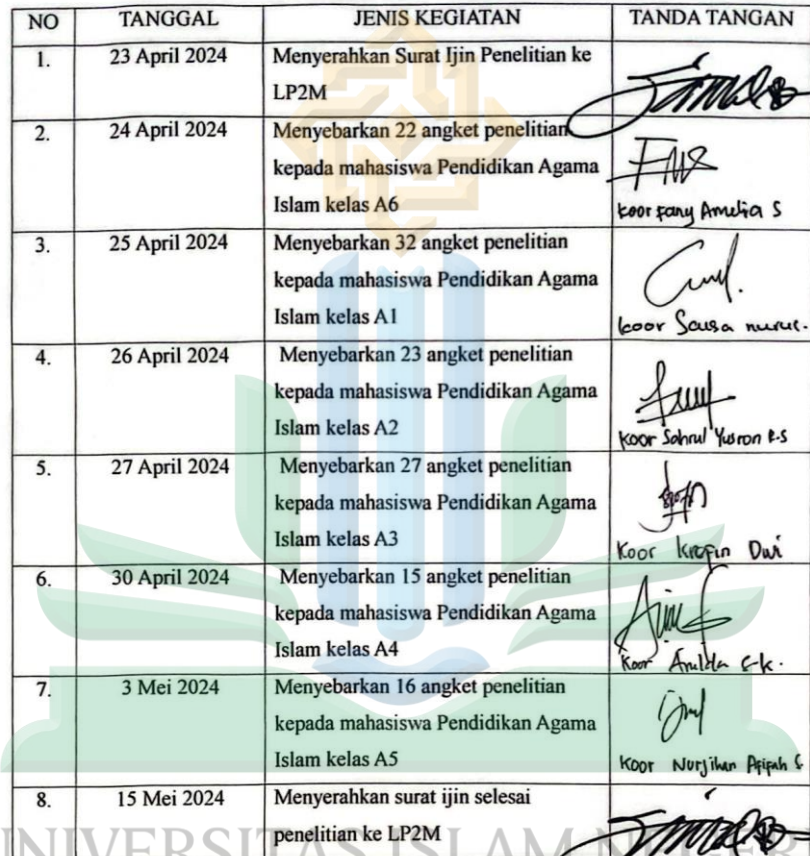 NO TANGGAL JENIS KEGIATAN TANDA TANGAN
1. 23 April 2024 Menyerahkan Surat Ijin Penelitian ke
LP2M
2. 24 April 2024 Menyebarkan 22 angket penelitian
kepada mahasiswa Pendidikan Agama
Islam kelas A6
koor fany Amelia S
3. 25 April 2024 Menyebarkan 32 angket penelitian
kepada mahasiswa Pendidikan Agama
Islam kelas A1
koor Sausa nurus.
4. 26 April 2024 Menyebarkan 23 angket penelitian
kepada mahasiswa Pendidikan Agama
Islam kelas A2
Koor Sahrul Yusron R.S
5. 27 April 2024 Menyebarkan 27 angket penelitian
kepada mahasiswa Pendidikan Agama
Islam kelas A3
Koor Dwi
6. 30 April 2024 Menyebarkan 15 angket penelitian
kepada mahasiswa Pendidikan Agama
Islam kelas A4
Koor
7. 3 Mei 2024 Menyebarkan 16 angket penelitian
kepada mahasiswa Pendidikan Agama
Islam kelas A5
Koor Nurjihan Afifah S
8. 15 Mei 2024 Menyerahkan surat ijin selesai
penelitian ke LP2M
UNIVERSITAS ISLAM NEGERI